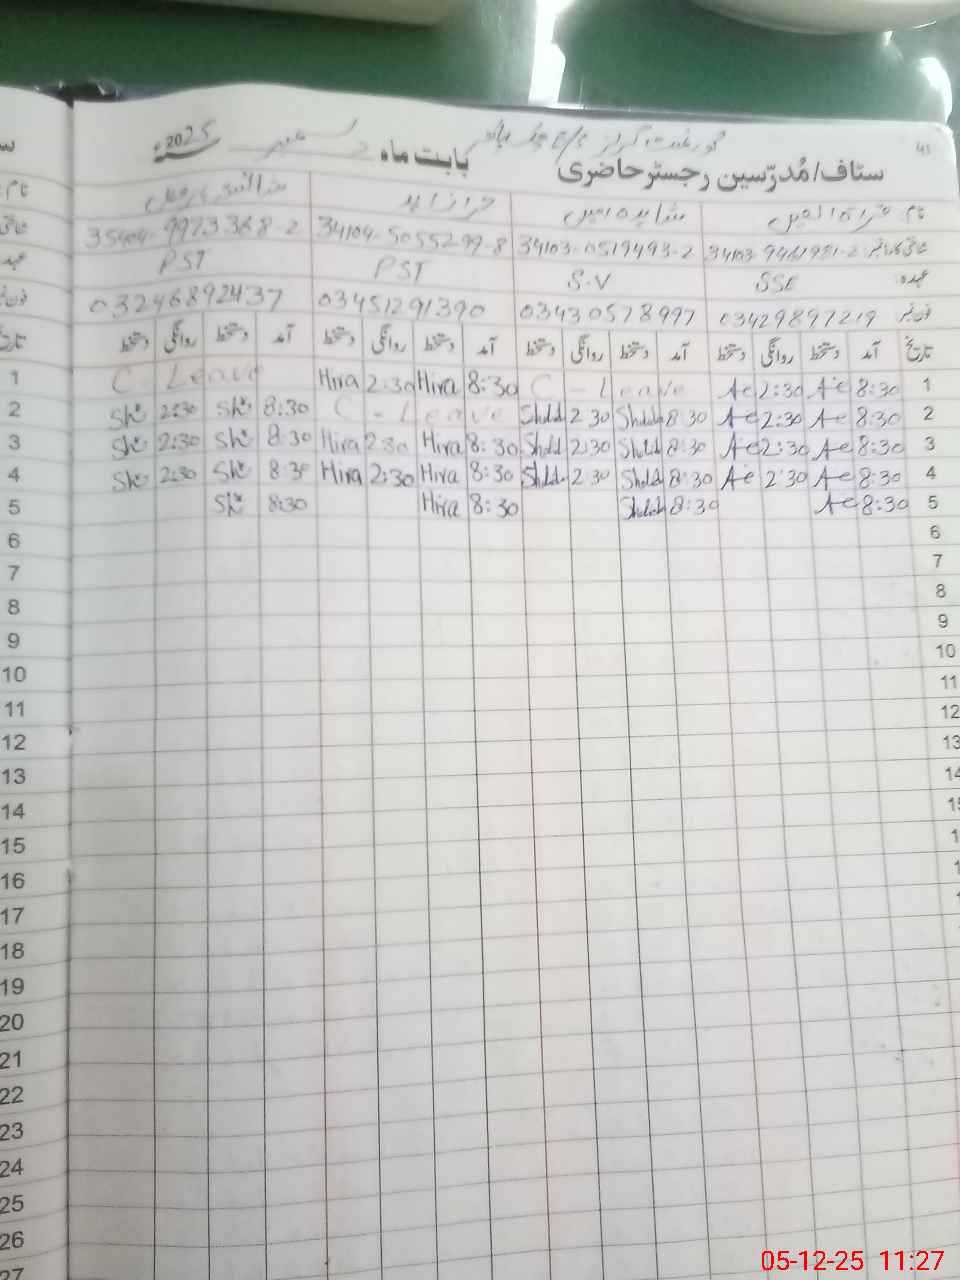 41
گورنمنٹ گرلز
ستاف/مُدرّسین رجسٹر حاضری بابت ماہ دسمبر سنہ 2025ء
نام: قراۃ العین شاہدہ امین حرا زاہد
34103-9461951-2 34103-0519493-2 34104-5055299-8 35404-9973368-2
عہدہ: SSE S.V PST PST
فون نمبر 03429897219 03430578997 03451291390 03246892437
تاریخ آمد دستخط روانگی دستخط آمد دستخط روانگی دستخط آمد دستخط روانگی دستخط آمد دستخط روانگی دستخط
1 8:30 Ae 2:30 Ae C - Leave 8:30 Hira 2:30 Hira C - Leave 1
2 8:30 Ae 2:30 Ae 8:30 Shdah 2 30 Shdah C - Leave 8:30 Sh 2:30 Sh 2
3 8:30 Ae 2:30 Ae 8:30 Shdah 2:30 Shdah 8:30 Hira 2:30 Hira 8:30 Sh 2:30 Sh 3
4 8:30 Ae 2:30 Ae 8:30 Shdah 2 30 Shdah 8:30 Hira 2:30 Hira 8:30 Sh 2:30 Sh 4
5 8:30 Ae 8:30 Shdah 8:30 Hira 8:30 Sh 5
6 6
7 7
8 8
9 9
10 10
11 11
12 12
13 13
14 14
15 15
16
17
18
19
20
21
22
23
24
25
26
27
05-12-25 11:27